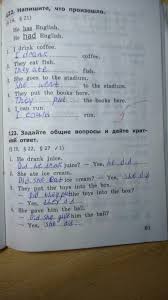 122. Напишите, что произошло.
(§ 19, § 21)
He has English.
He had English.
1. I drink coffee.
I drank coffee.
They eat fish.
They ate fish.
She goes to the stadium.
She went to the stadium.
They put the books here.
They put the books here.
I can run.
I could run.
123. Задайте общие вопросы и дайте краткий ответ.
(§ 19, § 22, § 27 ✓)
1. He drank juice.
Did he drink juice? – Yes, he did.
2. She ate ice cream.
Did she eat ice cream? – Yes, she did.
3. They put the toys into the box.
Did they put the toys into the box?
– Yes, they did.
4. She gave him the ball.
Did she give him the ball?
– Yes, she did.
61